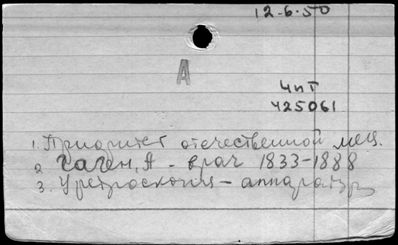 12-6-50
А
ЧиТ
425061
1. Приоритет отечественной мед.
2. Гаген, А - врач 1833-1888
3. Уретроскопия - аппаратура